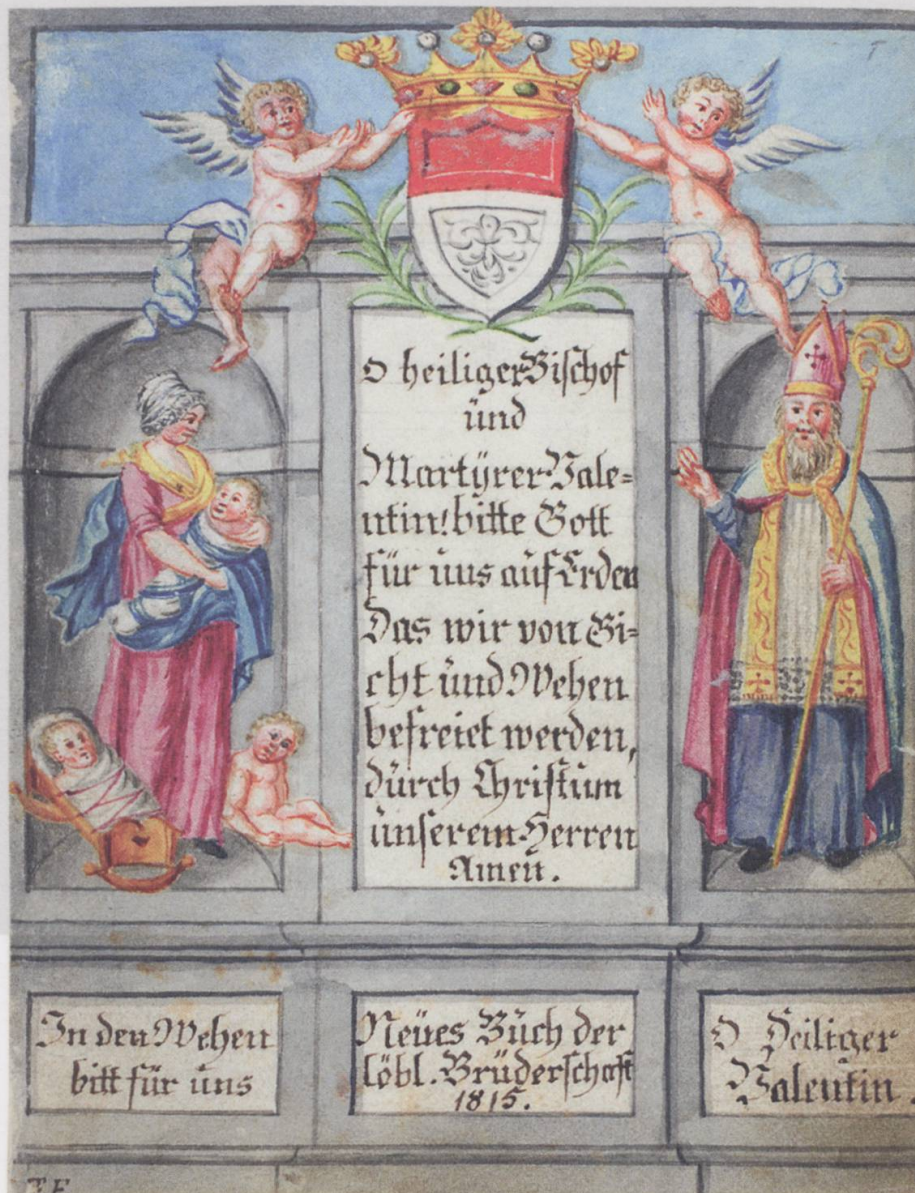 O heiliger Bischof
und
Martÿrer Vale=
ntin! bitte Gott
für uns auf Erden
Das wir von Gi=
cht und Wehen
befreiet werden,
durch Christum
unserem Herren
Amen.
In den Wehen
bitt für uns
Neües Buch der
löbl. Brüderschaft
1815.
O Heiliger
Valentin.